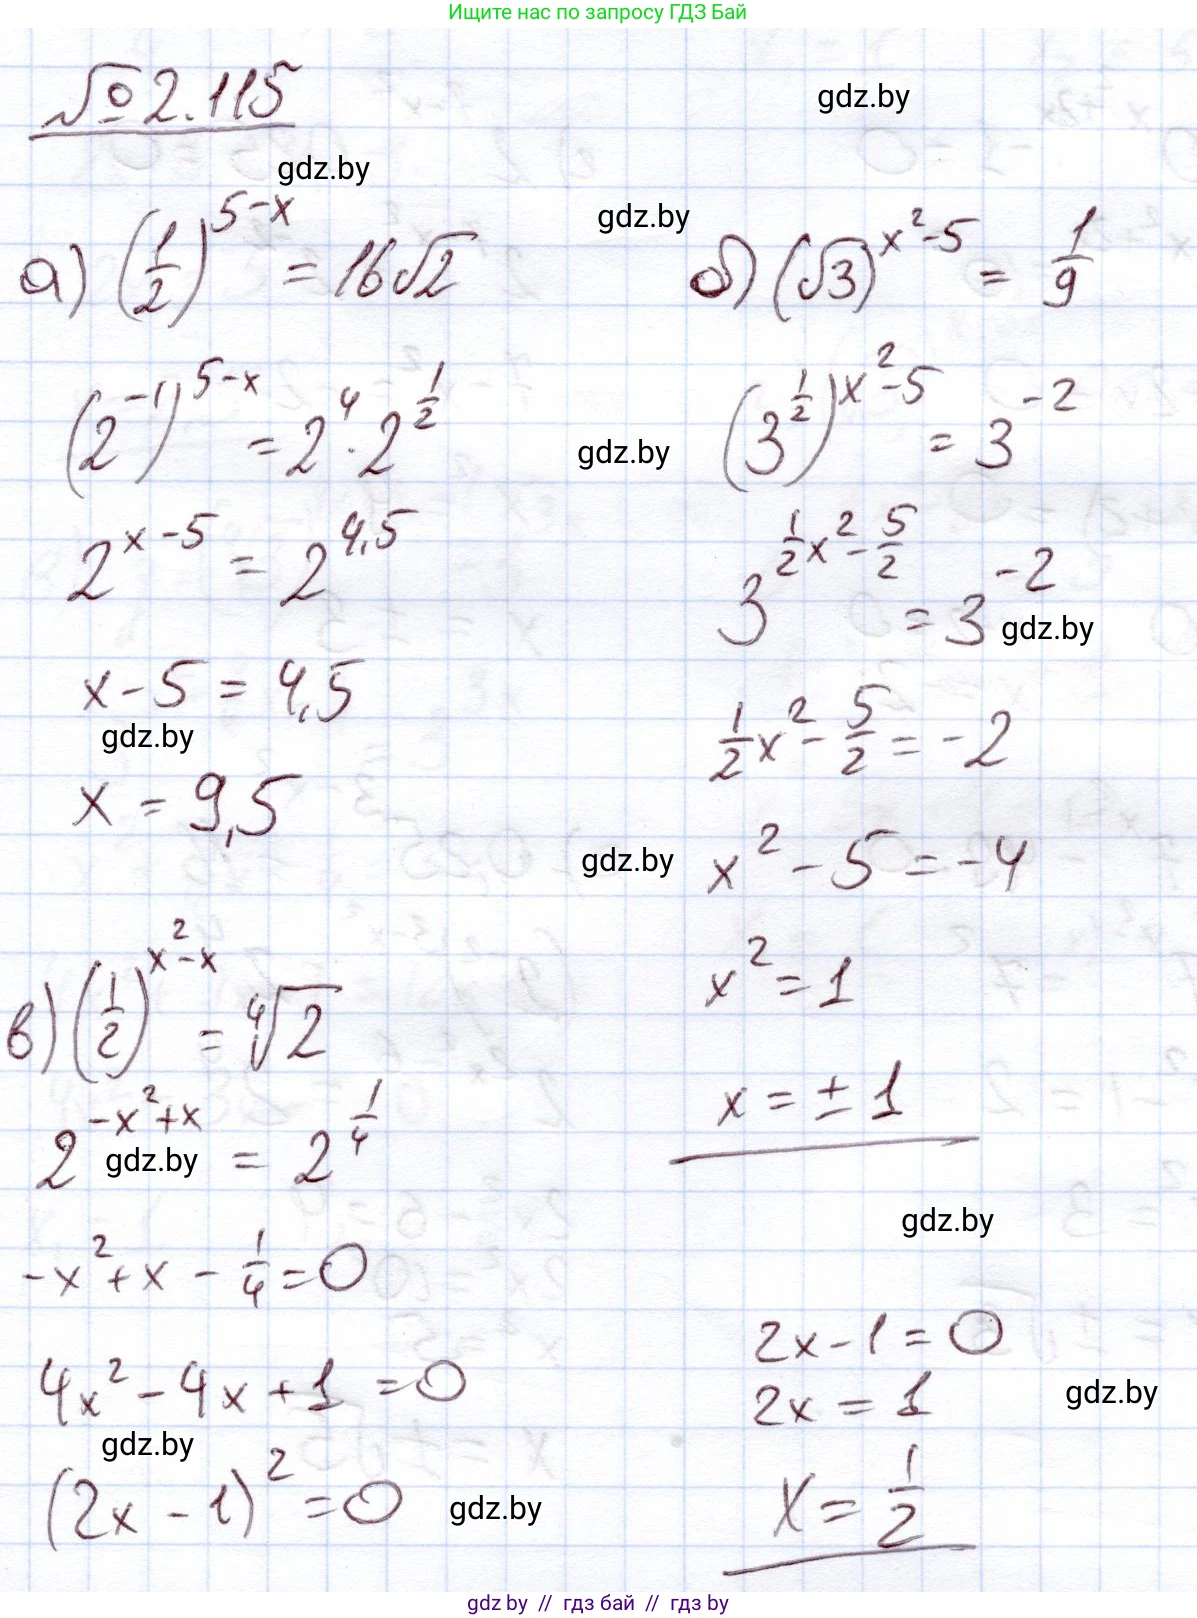 Ищите нас по запросу ГДЗ Бай
№ 2.115
gdz.by
gdz.by
gdz.by
а) (1/2)^(5-x) = 16√2
(2^(-1))^(5-x) = 2^4 · 2^(1/2)
2^(x-5) = 2^(4,5)
x - 5 = 4,5
gdz.by
x = 9,5
б) (√3)^(x²-5) = 1/9
gdz.by
(3^(1/2))^(x²-5) = 3^(-2)
3^(1/2x²-5/2) = 3^(-2)
gdz.by
1/2x² - 5/2 = -2
gdz.by
x² - 5 = -4
x² = 1
x = ± 1
в) (1/2)^(x²-x) = ⁴√2
2^(-x²+x) = 2^(1/4)
gdz.by
-x² + x - 1/4 = 0
4x² - 4x + 1 = 0
gdz.by
(2x - 1)² = 0
gdz.by
gdz.by
2x - 1 = 0
2x = 1
gdz.by
x = 1/2
gdz.by // гдз бай // гдз by